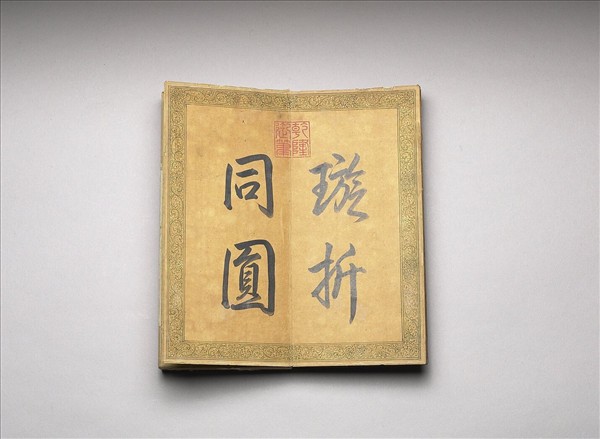 璇折
同圓
乾隆御筆